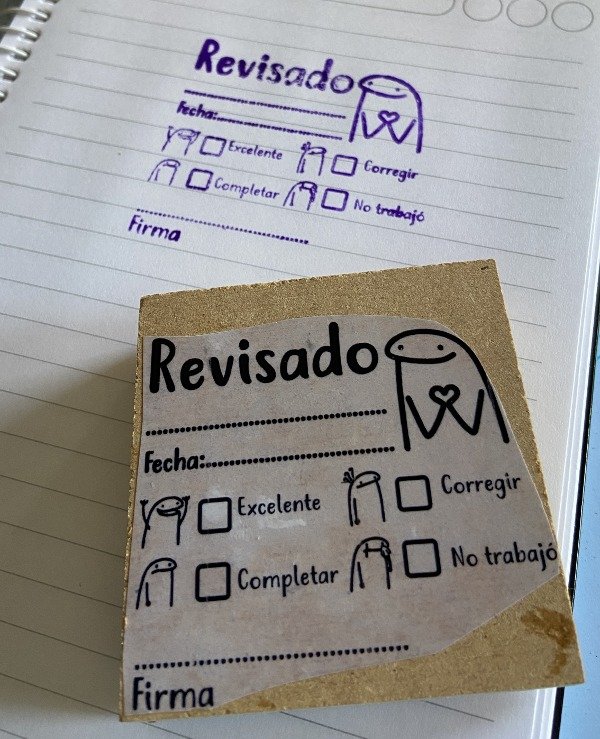 Revisado
Fecha:
Excelente Corregir
Completar No trabajó
Firma
Revisado
Fecha:
Excelente Corregir
Completar No trabajó
Firma